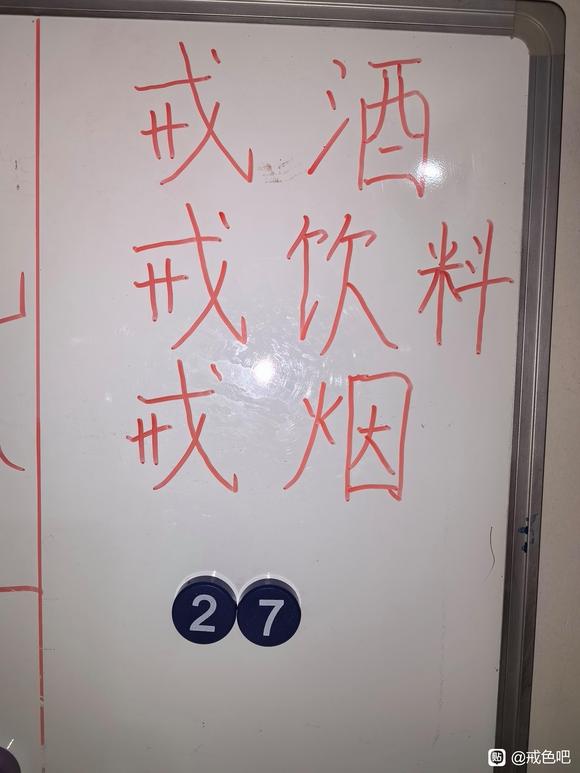 戒酒
戒饮料
戒烟
27
贴 @戒色吧